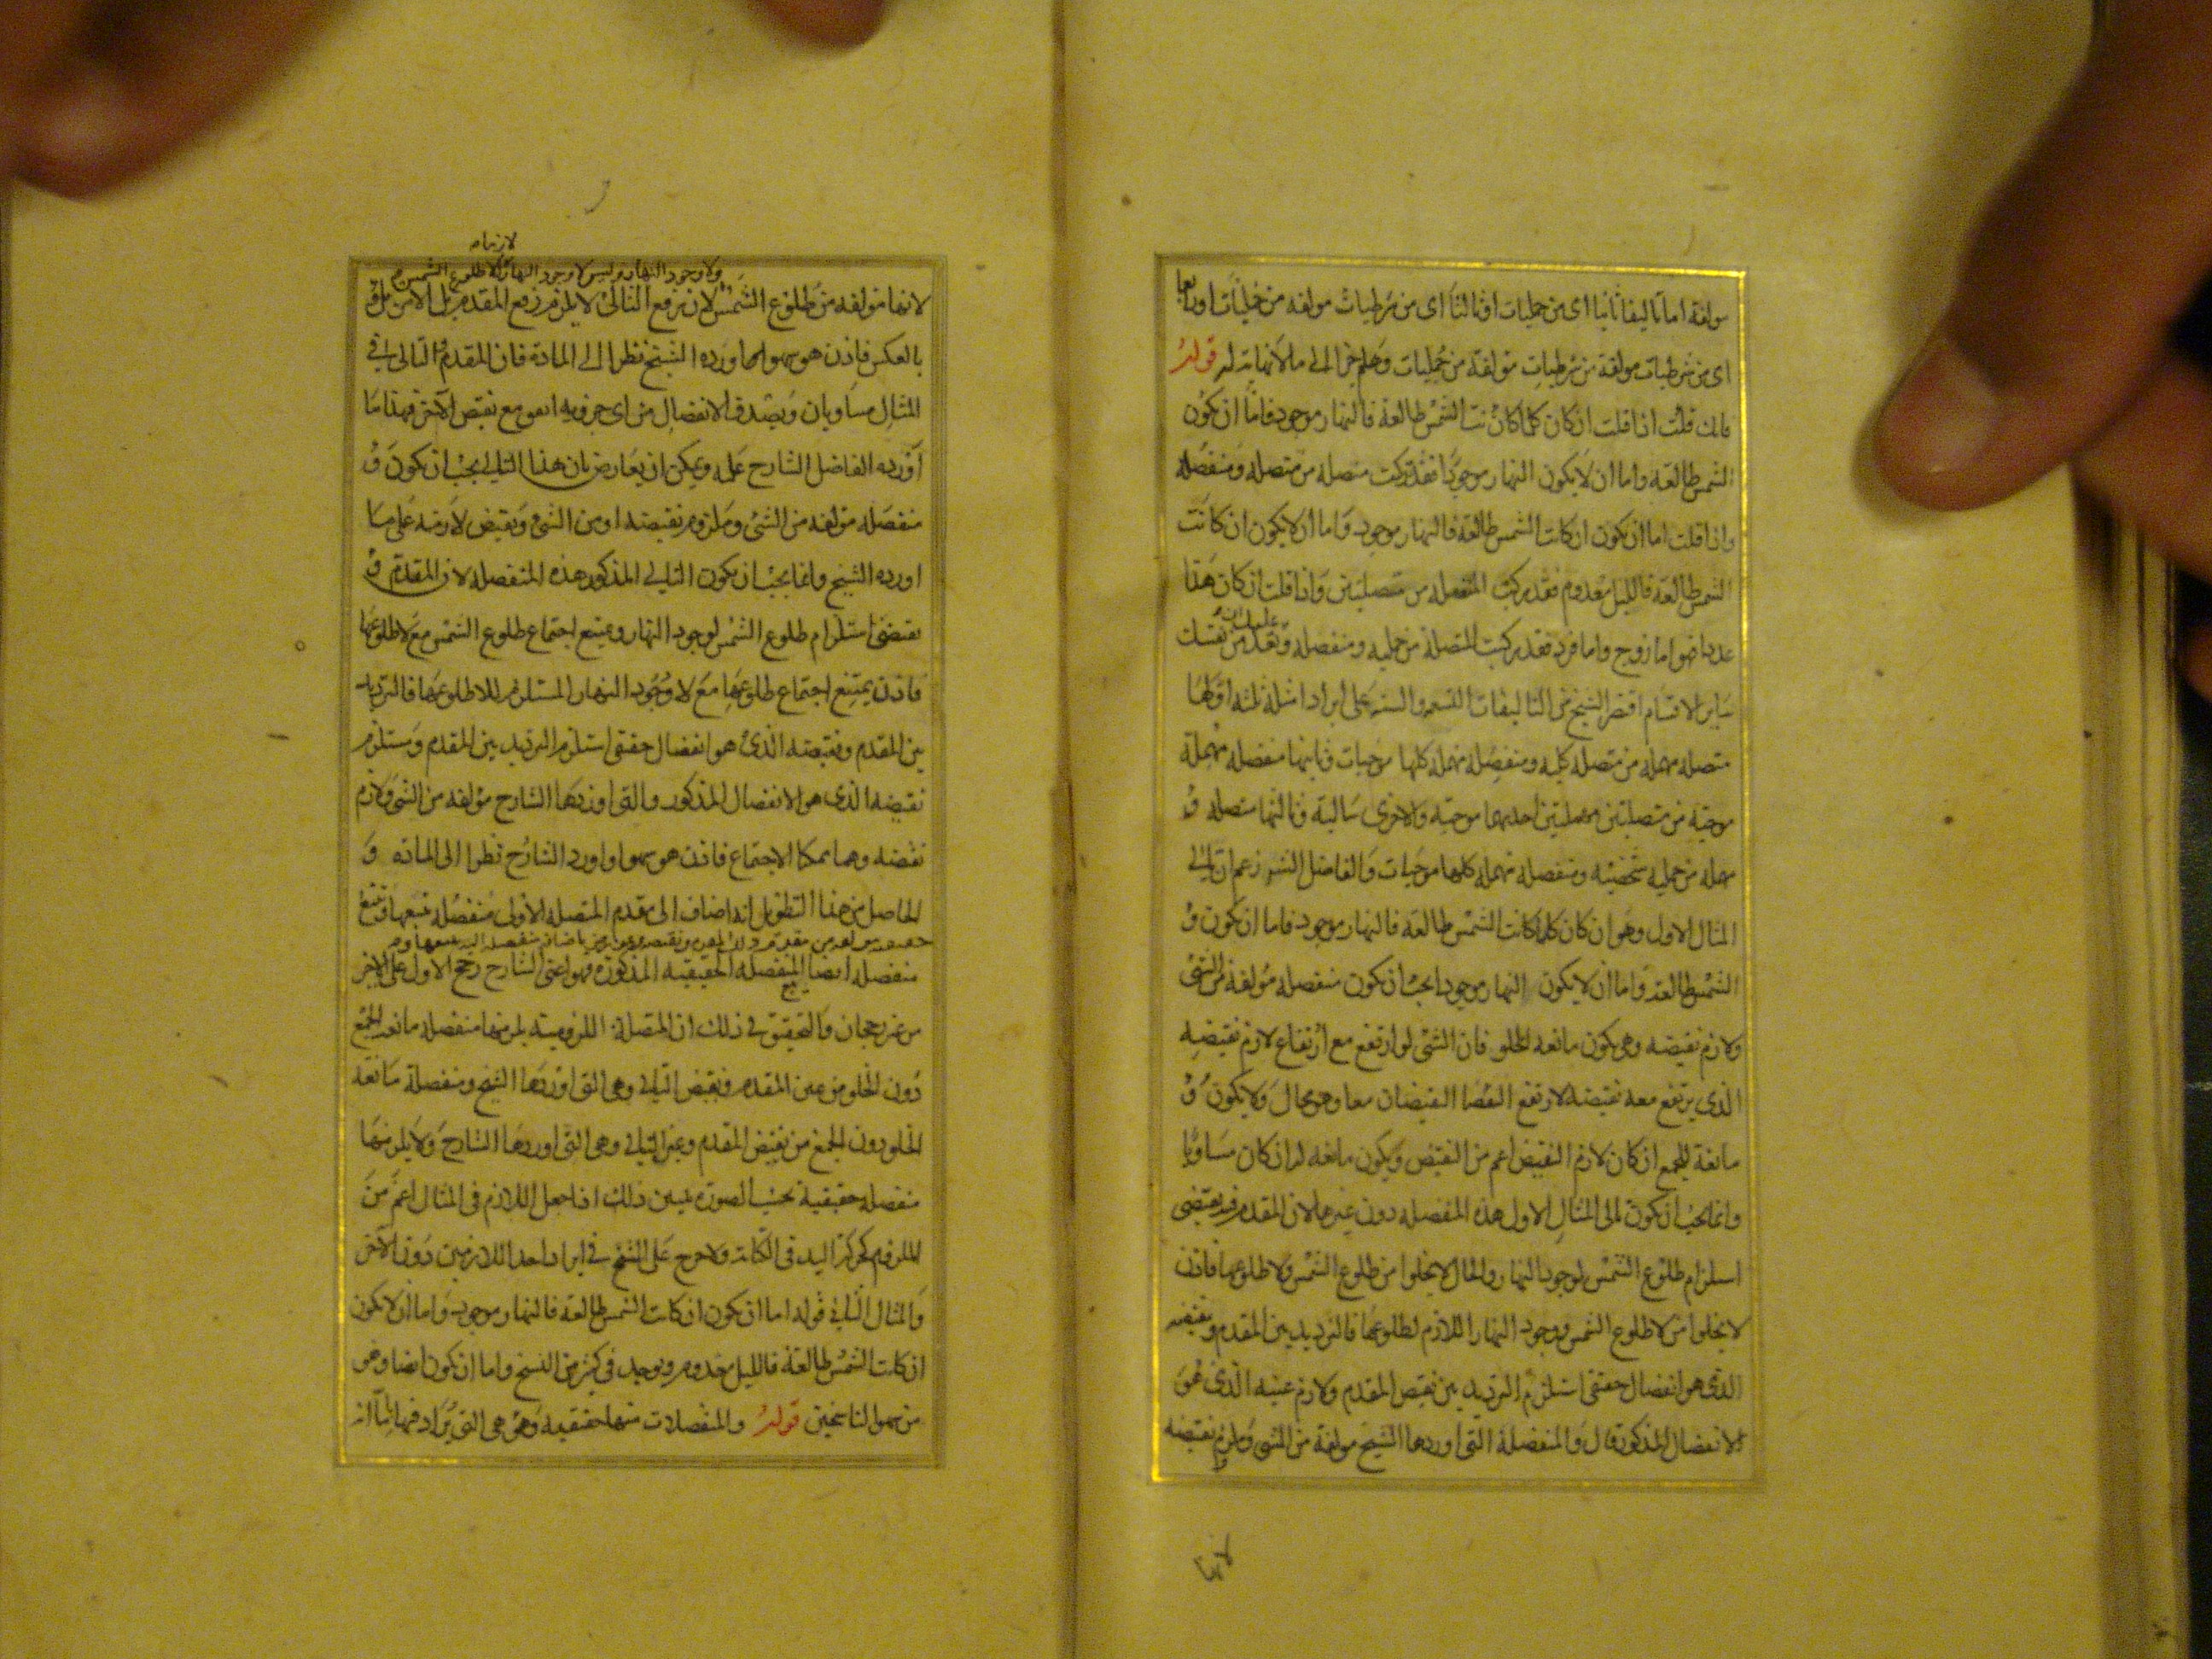 مولفة اما تاليفا ثانيا اى من حمليات او ثالثا اى من شرطيات مولفه من حمليات او رابعا
اى من شرطيات مولفة من شرطيات مؤلفة من حمليات وهلم جرا الى ما لا نهاية له قوله
فانك قلت اذا قلت ان كان كلما كانت الشمس طالعة فالنهار موجود فاما ان تكون
الشمس طالعه واما ان لا يكون النهار موجودا فقد تركبت متصله من متصله ومنفصله
واذا قلت اما ان يكون ان كانت الشمس طالعة فالنهار موجود واما ان لا يكون ان كانت
الشمس طالعة فالليل معدوم فقد تركبت المنفصله من متصلتين واذا قلت ان كان هذا
عددا فهو اما زوج واما فرد فقد تركبت المتصلة من حمليه ومنفصله وتعد من نفسك
ساير الاقسام اقتصر الشيخ من التاليفات التسعه والسته على ايراد امثلة ثلثه اولها
متصله مهمله من متصله كليه ومنفصله مهمله كلها موجبات وثانيها منفصله مهملة
موجبة من متصلتين مهملتين احديهما موجبه والاخرى سالبة وثالثها متصله
مهمله من حمليه شخصيه ومنفصله مهمله كلها موجبات والفاضل الشارح زعم ان تالى
المثال الاول وهو ان كان كلما كانت الشمس طالعة فالنهار موجود فاما ان تكون
الشمس طالعة واما ان لا يكون النهار موجودا يجب ان تكون منفصله مؤلفة من الشئ
ولازم نقيضه وهى تكون مانعه الخلو فان الشئ لو ارتفع مع ارتفاع لازم نقيضه
الذى يرتفع معه نقيضه لارتفع النقيضان معا وهو محال ولا يكون
مانعة للجمع ان كان لازم النقيض اعم من النقيض ويكون مانعه له ان كان مساويا
وانما يجب ان تكون تالى المثال الاول هذه المنفصله دون غيرها لان المقدم فيه يقتضى
استلزام طلوع الشمس لوجود النهار والحال لا يخلوا من طلوع الشمس ولا طلوعها فاذن
لا يخلوا من لا طلوع الشمس ووجود النهار اللازم لطلوعها فالترديد بين المقدم ونقيضه
الذى هو انفصال حقيقى استلزم الترديد بين نقيض المقدم ولازم عينه الذى هو
الانفصال المذكور قال والمنفصلة التى اوردها الشيخ مولفة من الشئ وملزوم نقيضه
لانها
لازمة
ولا وجود النهار وليس لا وجود النهار لازما للا طلوع الشمس
لانها مؤلفه من طلوع الشمس لان رفع التالى لا يلزم رفع المقدم بل الامر
بالعكس فاذن هو سهو لما اورده الشيخ نظرا الى المادة فان المقدم والتالى فى
المثال مساويان ويصدق الانفصال من اى جزويه اتفق مع نقيض الآخر فهذا ما
اورده الفاضل الشارح عليه ويمكن ان يعارض بان هذا التالى يجب ان تكون
منفصله مؤلفه من الشئ وملزوم نقيضه او من الشئ ونقيض لازمه على ما
اورده الشيخ وانما يجب ان تكون التالى المذكور هذه المنفصله لان المقدم
يقتضى استلزام طلوع الشمس لوجود النهار ويمتنع اجتماع طلوع الشمس مع لا طلوعها
فاذن يمتنع اجتماع طلوعها مع لا وجود النهار المستلزم للا طلوعها فالترديد
بين المقدم ونقيضه الذى هو انفصال حقيقى استلزم الترديد بين المقدم ومستلزم
نقيضه الذى هو الانفصال المذكور والتى اوردها الشارح مؤلفه من الشئ ولازم
نقيضه وهما ممكنا الاجتماع فاذن هو سهو او اورد الشارح نظرا الى الماده و
الحاصل من هذا التطويل انه اضاف الى مقدم المتصله الاولى منفصله
منفصله ايضا المنفصله الحقيقيه المذكوره فهو اعنى الشارح رجح الاول على الاخر
من غير رجحان والتحقيق فى ذلك ان المتصلة اللزوميه يلزمها منفصله مانعه الجمع
دون الخلو من عين المقدم ونقيض التالى وهى التى اوردها الشيخ ومنفصلة مانعه
الخلو دون الجمع من نقيض المقدم وعين التالى وهى التى اوردها الشارح ولا يلزمها
منفصله حقيقية بحسب الصوره يتبين ذلك اذا جعل اللازم فى المثال اعم من
الملزوم كحركة اليد فى الكتابة ولا حرج على الشيخ فى ايراد احد اللازمين دون الآخر
والمثال الثانى قوله اما ان يكون ان كانت الشمس طالعة فالنهار موجود واما ان لا يكون
ان كانت الشمس طالعة فالليل معدوم ويوجد فى كثير من النسخ واما ان يكون ايضا وهو
من سهو الناسخين قوله والمنفصلات منها حقيقيه وهى هى التى يراد فيها باما انه